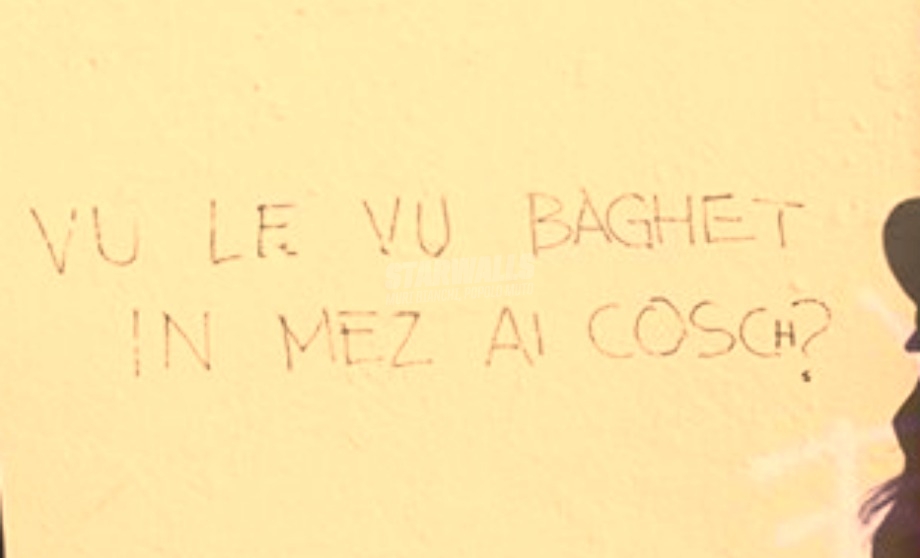 VU LE VU BAGHET
IN MEZ AI COSCH?
STARWALLS